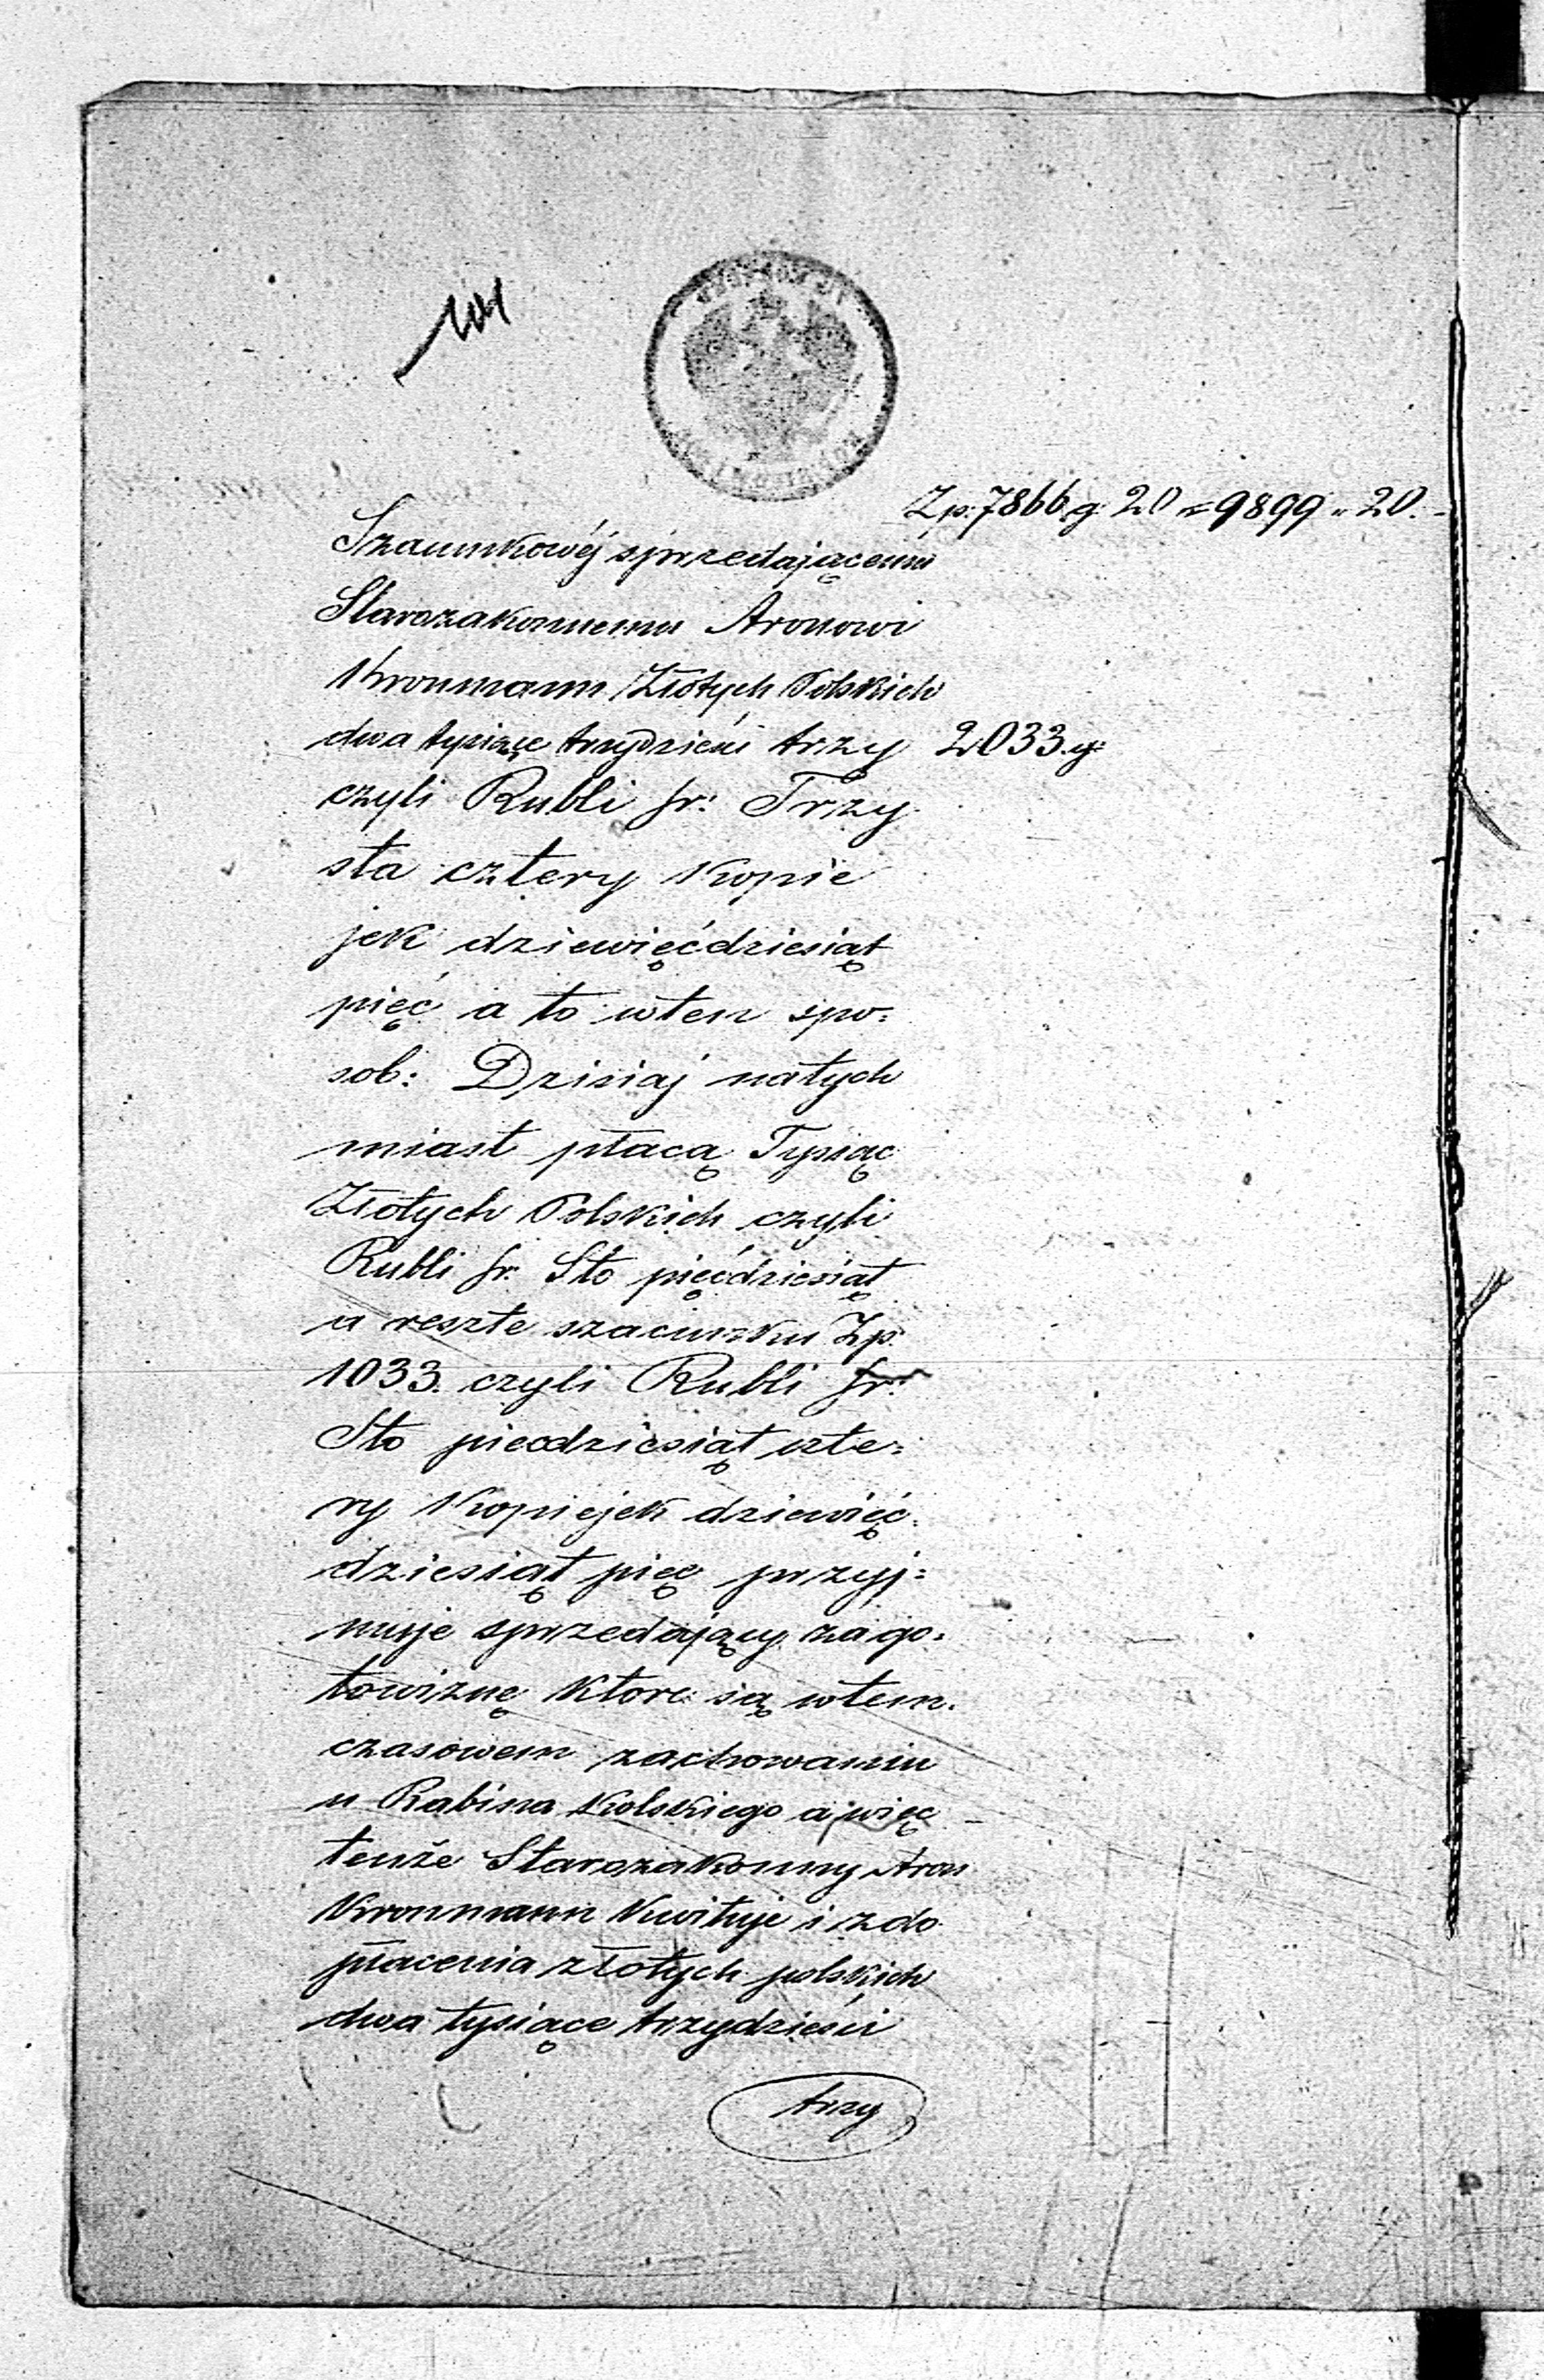 101
Zp. 7866. g. 20 = 9899 „ 20.
Szacunkowéj sprzedającemu
Starozakonnemu Aronowi
Kronmann Złotych Polskich
dwa tysiące trzydzieści trzy 2033. g:
czyli Rubli sr: Trzy
sta cztery Kopie
jek dziewięćdziesiąt
pięć a to wten spo=
sob: Dzisiaj natych
miast płacą Tysiąc
Złotych Polskich czyli
Rubli sr: Sto pięćdziesiąt
a reszte szacunku Zp:
1033. czyli Rubli sr:
Sto piecdziesiąt czte=
ry Kopiejek dziewięć=
dziesiąt pięc przyj=
muje sprzedający za go=
towiznę ktore są wtem=
czasowem zachowaniu
u Rabina Kolskiego a więc
tenże Starozakonny Aron
Kronmann Kwituje i z do
płacenia złotych polskich
dwa tysiące trzydzieści
trzy